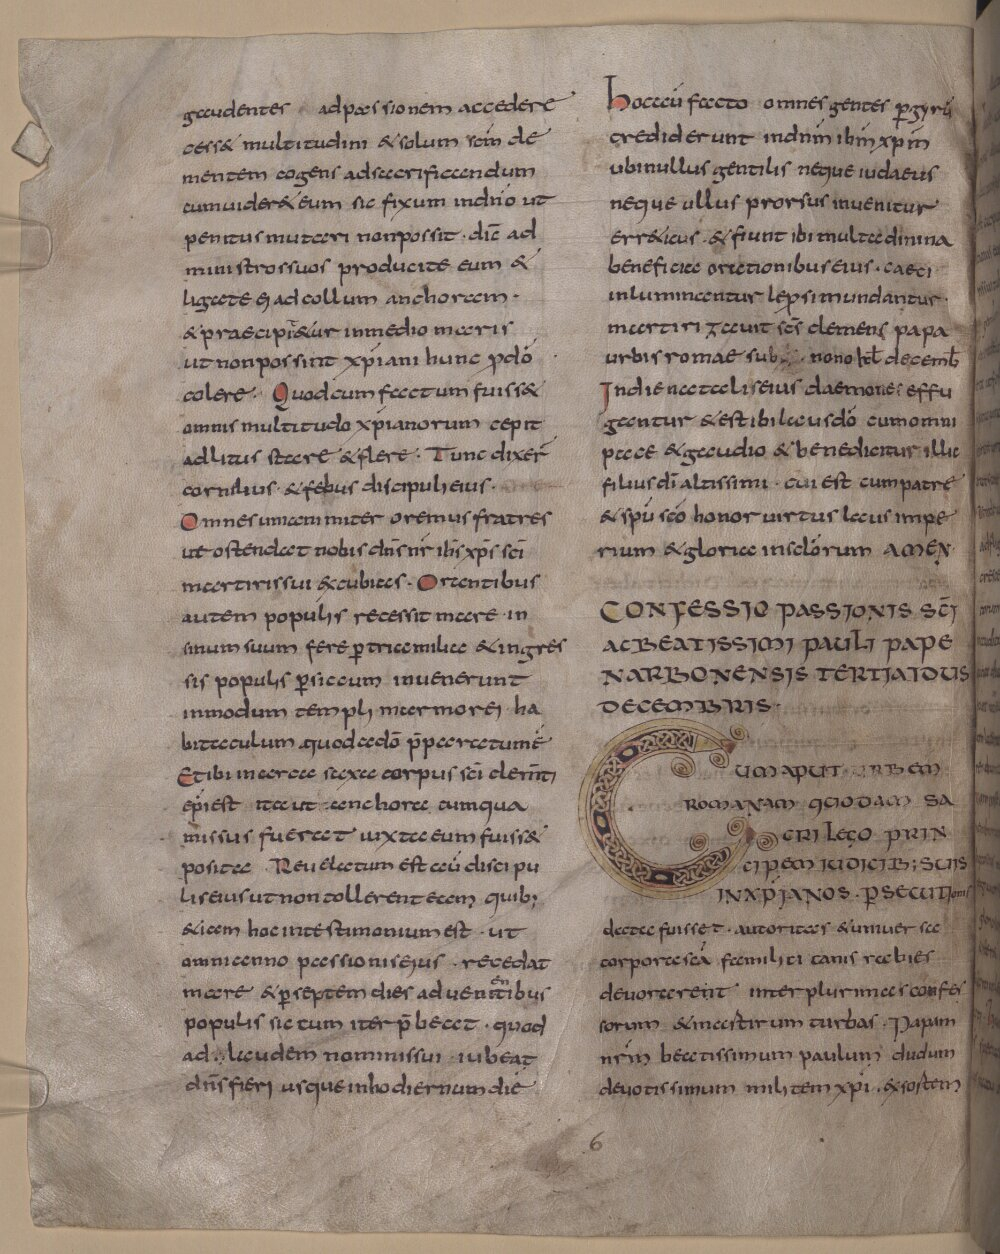 gaudentes ad passionem accedere
cess& multitudini & solum sc̄m cle
mentem cogens adsacrificandum
cumuider& eum sic fixum indn̄o ut
penitus mutari nonpossit · dic̄ ad
ministrossuos producite eum &
ligate ei ad collum anchoram ·
& praecipit&ur inmedio maris
ut non possint xp̄iani hunc p̱ dō
colere · Quodcum factum fuiss&
omnis multitudo xp̄ianorum cepit
adlitus stare & flere · Tunc dixer̄
cornilius · & febus discipuli eius ·
Omnes unanimiter oremus fratres
ut ostendat nobis dn̄s nr̄ ih̄s xp̄s sc̄i
martirissui & cubicas · Orantibus
autem populis recessit mare in
sinum suum fere p̱ tria milia & ingres
sis populis p̱ siccum inuenerunt
inmodum templi marmorei ha
bitaculum quod a dō p̄paratum ē
Et ibi in arca saxea corpus sc̄i clem̄ti
ep̄i est ita ut anchora cumqua
missus fuerat iuxta eum fuiss&
posita Reuelatum est aū discipu
lis eius ut non tollerent eam quib;
& iam hoc intestimonium est · ut
omni anno passionis eius · recedat
mare & p̱ septem dies aduenientibus
populis sictum iter p̄beat · quod
ad laudem nominissui iubeat
dn̄s fieri usque inhodiernum diē
Hoc aū facto omnes gentes p̱ gyrū
crediderunt indn̄m ih̄m xp̄m
ubi nullus gentilis neque iudaeus
neque ullus prorsus inuenitur
err&icus · & fiunt ibi multa diuina
beneficia orationibus eius · caeci
inluminantur lepsi mundantur ·
martirizauit sc̄s clemens papa
urbis romae sub nono kl̄ decemb̄
In die natalis eius daemones effu
gantur & est ibi laus dō cum omni
pace & gaudio & benedicitur illic
filius dī altissimi · cui est cum patre
& sp̄u sc̄o honor uirtus laus impe
rium & gloria inscl̄orum AMEN
CONFESSIO PASSIONIS SC̄I
AC BEATISSIMI PAULI PAPE
NARBONENSIS TERTIA IDUS
DECEMBRIS ·
CUM APUT URBEM
ROMANAM QUODAM SA
CRILEGO PRIN
CIPEM IUDICIB; SUIS
IN XP̄IANOS · P̱SECUTIonis
data fuisset · autoritas & uniuersa
corpora scā familici canis rabies
deuorarent inter plurimas confes
sorum & mastirum turbas · Papam
nr̄m beatissimum paulum dudum
deuotissimum militem xp̄i · & sostem
6